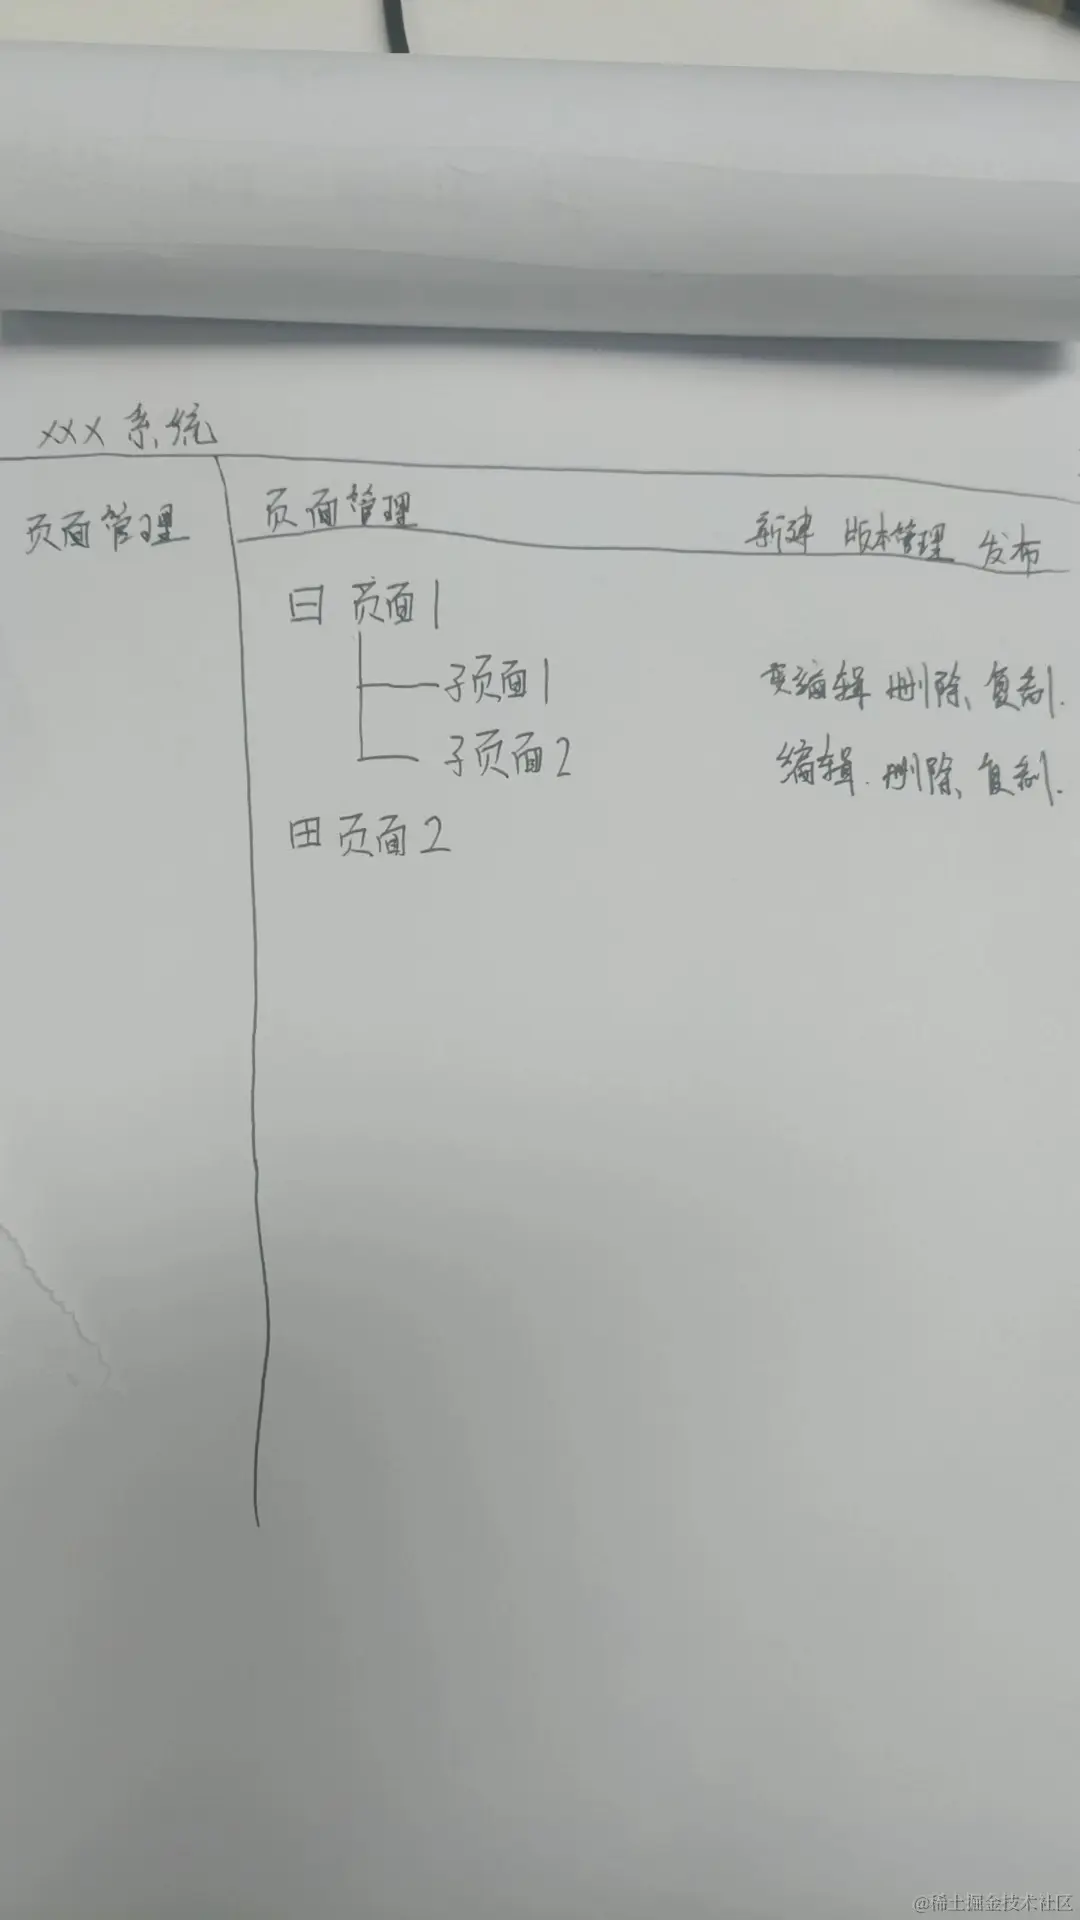 XXX 系统
页面管理
页面管理 新建 版本管理 发布
页面1
子页面1 编辑 删除、复制.
子页面2 编辑. 删除、复制.
页面2
@稀土掘金技术社区